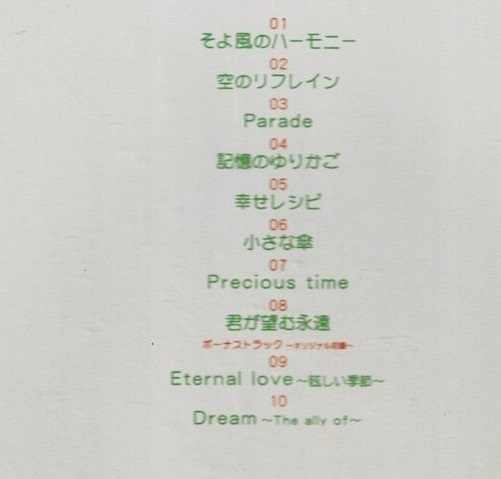 01
そよ風のハーモニー
02
空のリフレイン
03
Parade
04
記憶のゆりかご
05
幸せレシピ
06
小さな傘
07
Precious time
08
君が望む永遠
ボーナストラック ～オリジナル収録～
09
Eternal love～眩しい季節～
10
Dream～The ally of～